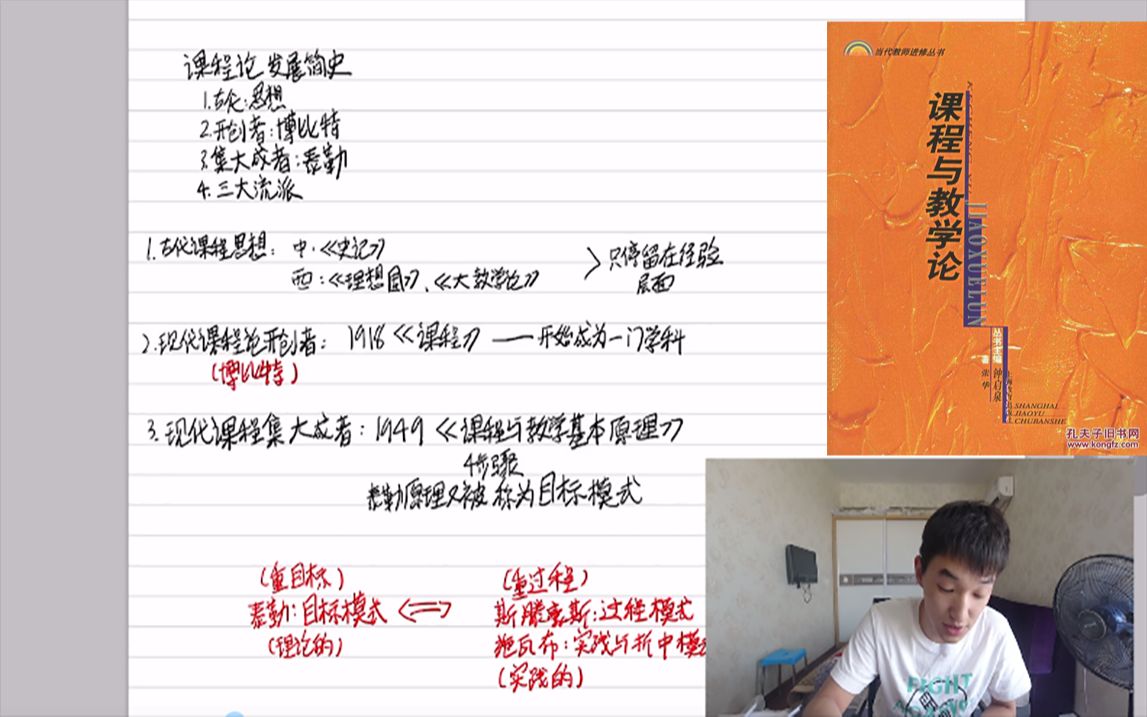 课程论发展简史
1.古代:思想
2.开创者:博比特
3.集大成者:泰勒
4.三大流派
1.古代课程思想: 中.《史记》
西:《理想国》、《大教学论》
只停留在经验
层面
2.现代课程论开创者: 1918《课程》——开始成为一门学科
(博比特)
3.现代课程集大成者:1949《课程与教学基本原理》
4步骤
泰勒原理又被称为目标模式
(重目标)
泰勒:目标模式
(理论的)
(重过程)
斯腾豪斯:过程模式
施瓦布:实践与折中模
(实践的)
当代教师进修丛书
课程与教学论
JIAOXUELUN
丛书主编 钟启泉
张华 著
SHANGHAI
JIAOYU
CHUBANSHE
孔夫子旧书网
www.kongfz.com
FIGHT